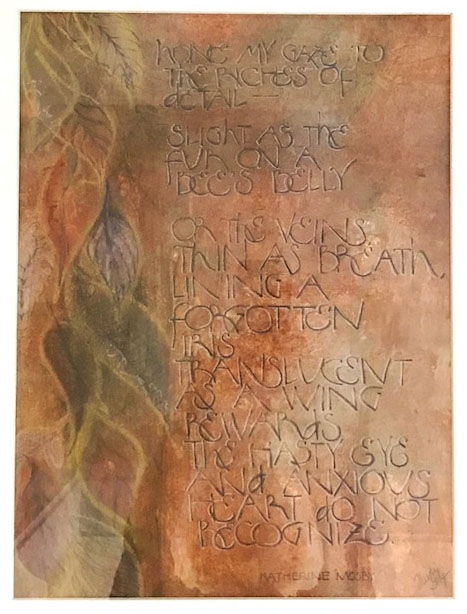 HONE MY GAZE TO
THE RICHES OF
dETAIL —
SLIGHT AS THE
FUR ON A
BEE'S BELLY
OR THE VEINS,
THIN AS BREATH,
LINING A
FORGOTTEN
IRIS
TRANSLUCENT
AS A WING
REWARDS
THE HASTY EYE
ANd ANXIOUS
HEART dO NOT
RECOGNIZE.
KATHERINE